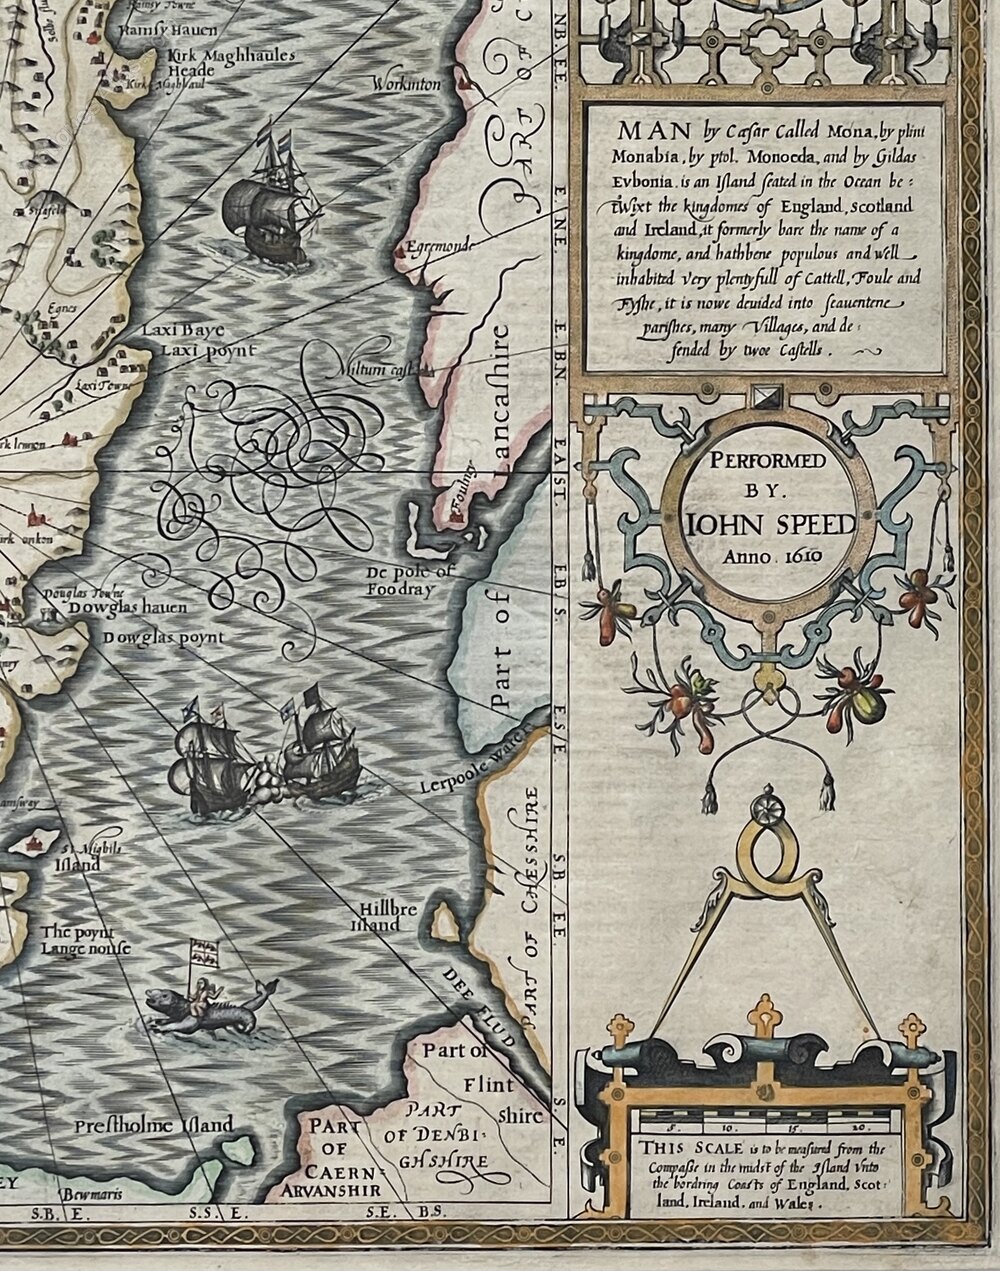 Ramsy Towne
Ramsy Hauen
Kirk Maghhaules
Heade
Kirk Maghaul
Workinton
PART OF
N.B. E.E.
E. N.E.
E. B.N
EAST.
E.B S.
E.S E.
S.B E.E.
S. E.
MAN by Cæsar Called Mona, by plini
Monabia, by ptol. Monoeda, and by Gildas
Evbonia. is an Island seated in the Ocean be:
twixt the kingdomes of England, Scotland
and Ireland, it formerly bare the name of a
kingdome, and hathbene populous and well
inhabited very plentyfull of Cattell, Foule and
Fyshe, it is nowe deuided into seauentene
parishes, many Villages, and de:
fended by twoe Castells.
Egremonde
Egnes
Laxi Baye
Laxi poynt
Laxi Towne
Miltum cast
Lancashire
Part of
rk lennon
Foulney
irk onkon
De pole of
Foodray
Douglas Towne
Dowglas hauen
Dowglas poynt
PERFORMED
BY.
IOHN SPEED
Anno. 1610
Lerpoole water
PART OF CHESSHIRE
St Mighils
Island
Hillbre
Island
The poynt
Lange nouse
DEE FLUD
Part of
Flint
shire
PART
OF DENBI:
GHSHIRE
PART
OF
CAERN:
ARVANSHIR
Prestholme Island
EY
Bewmaris
S.B. E.
S.S. E.
S.E. B.S.
5. 10. 15. 20.
THIS SCALE is to be measured from the
Compasse in the midst of the Island vnto
the bordring Coasts of England, Scot:
land, Ireland, and Wales.